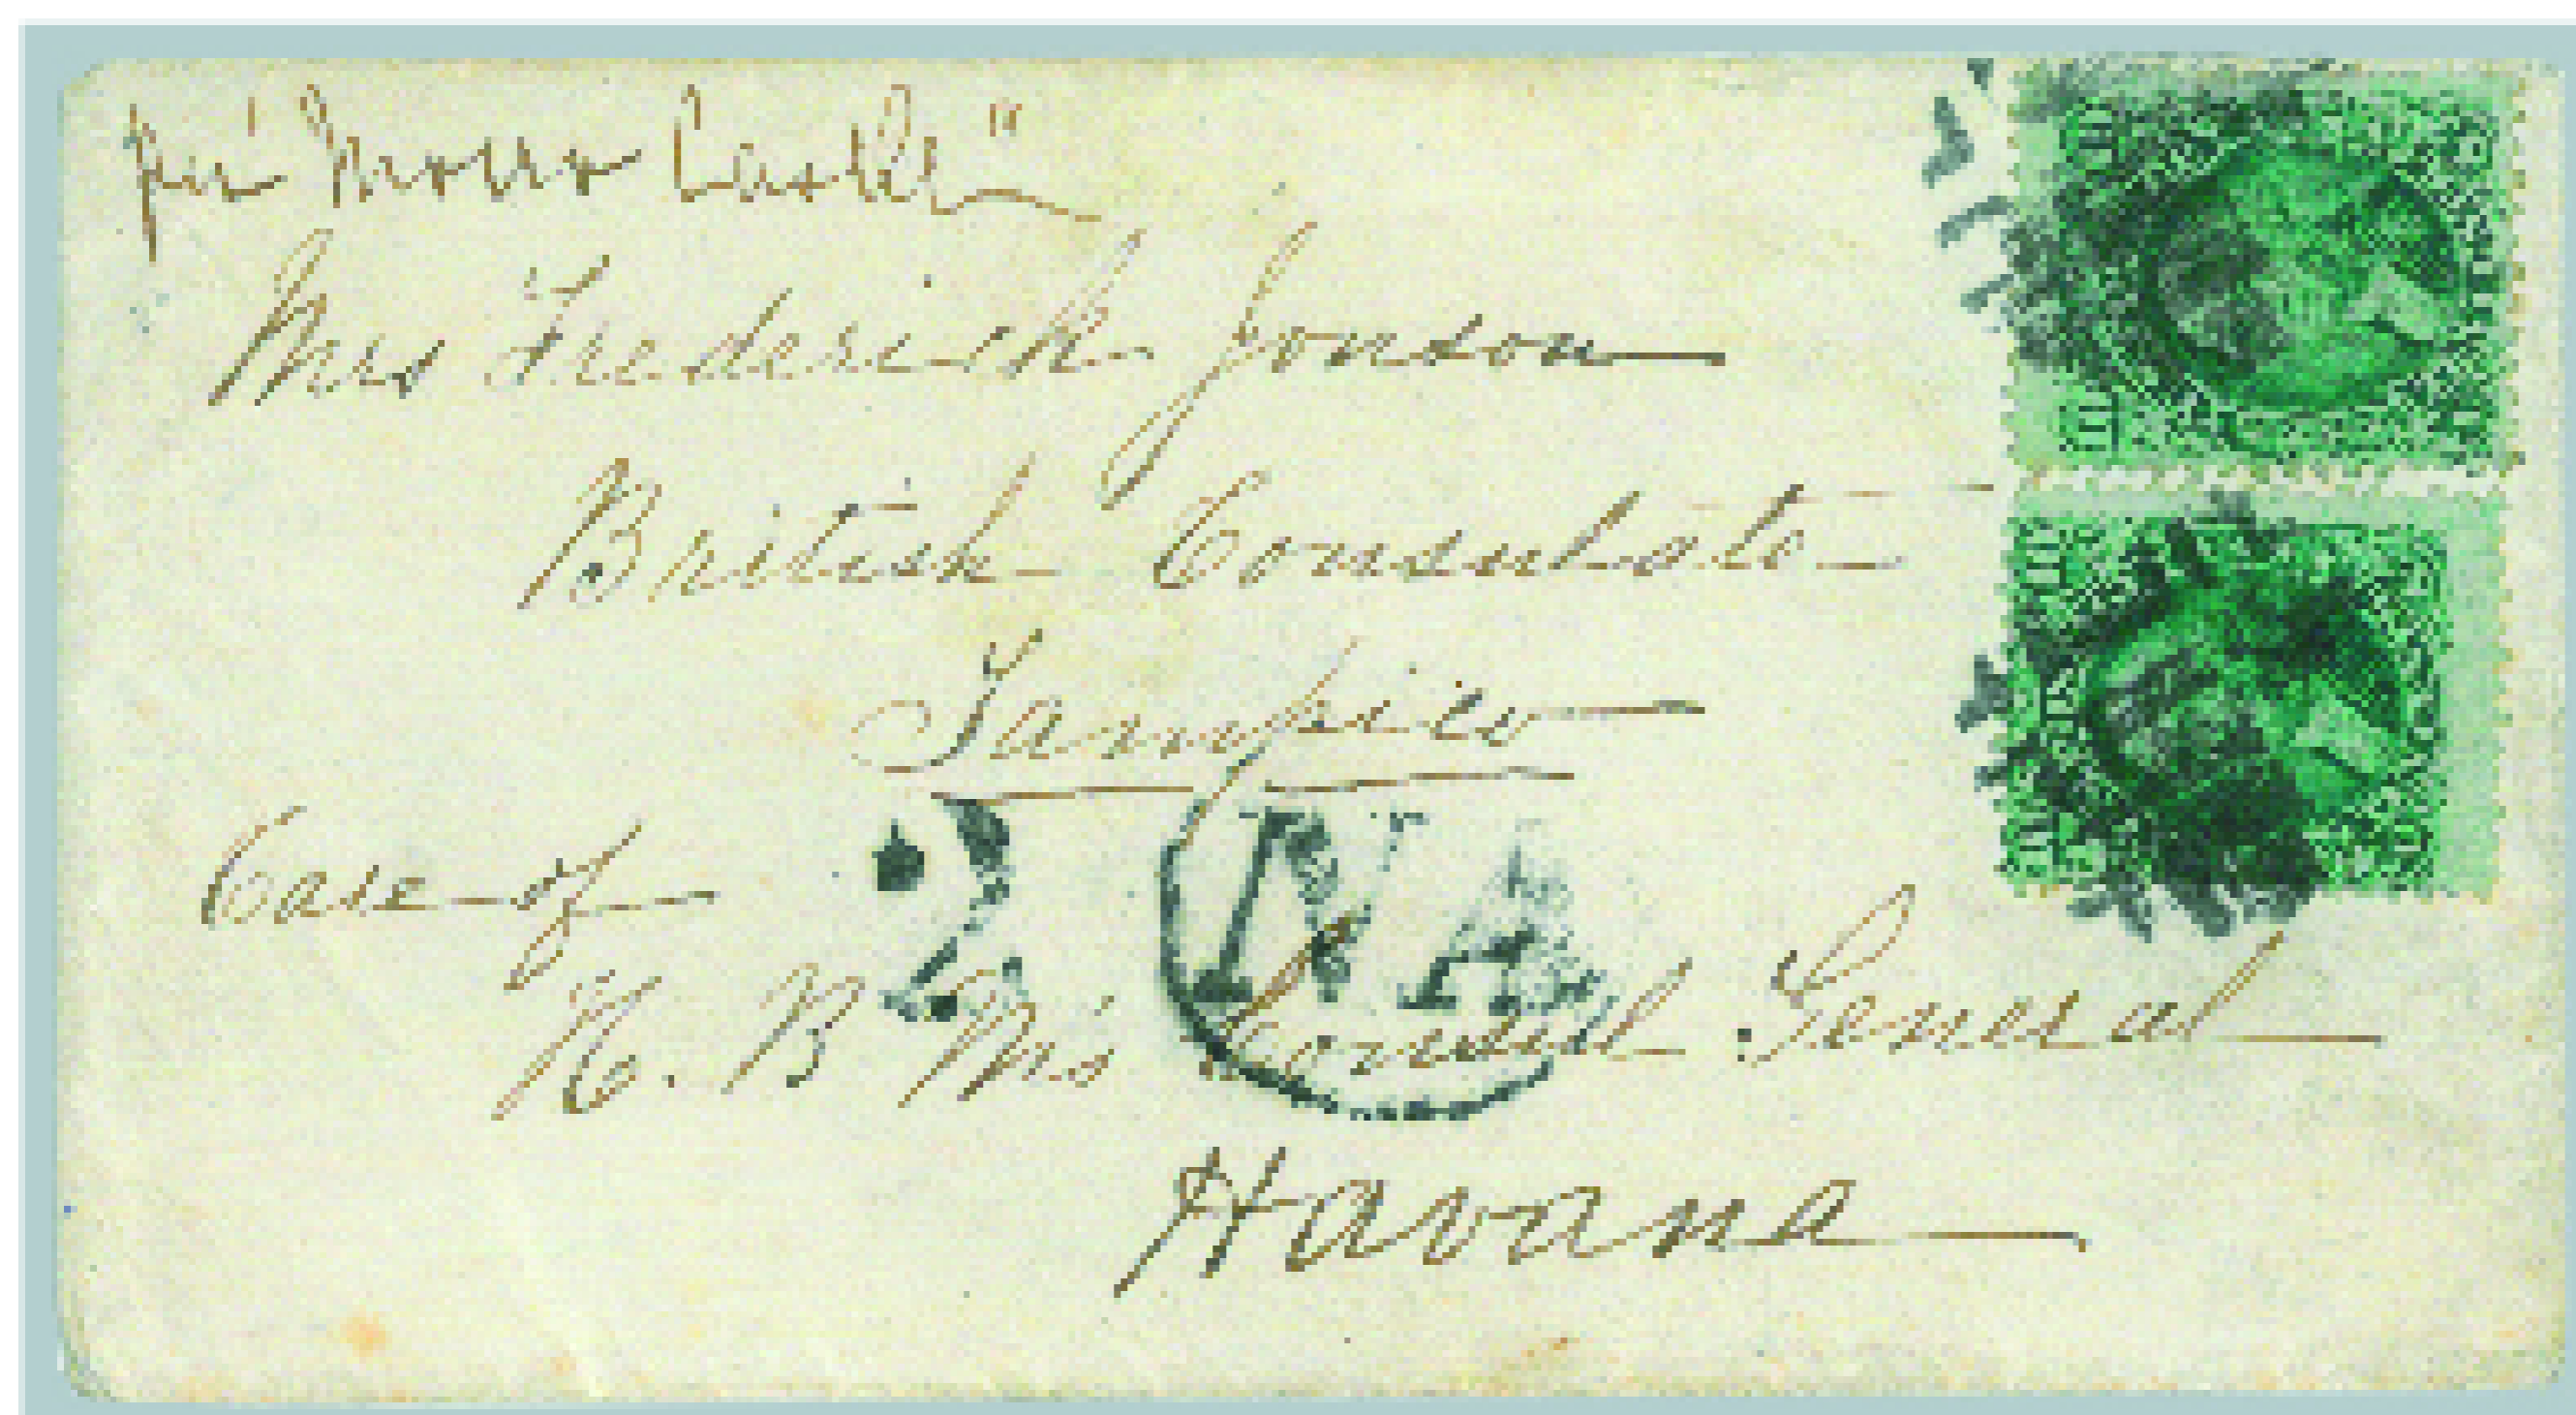 per "Morro Castle"
Mrs Frederick Jonson
British Consulate
Tampico
Care of
H. B M's Consul General
Havana